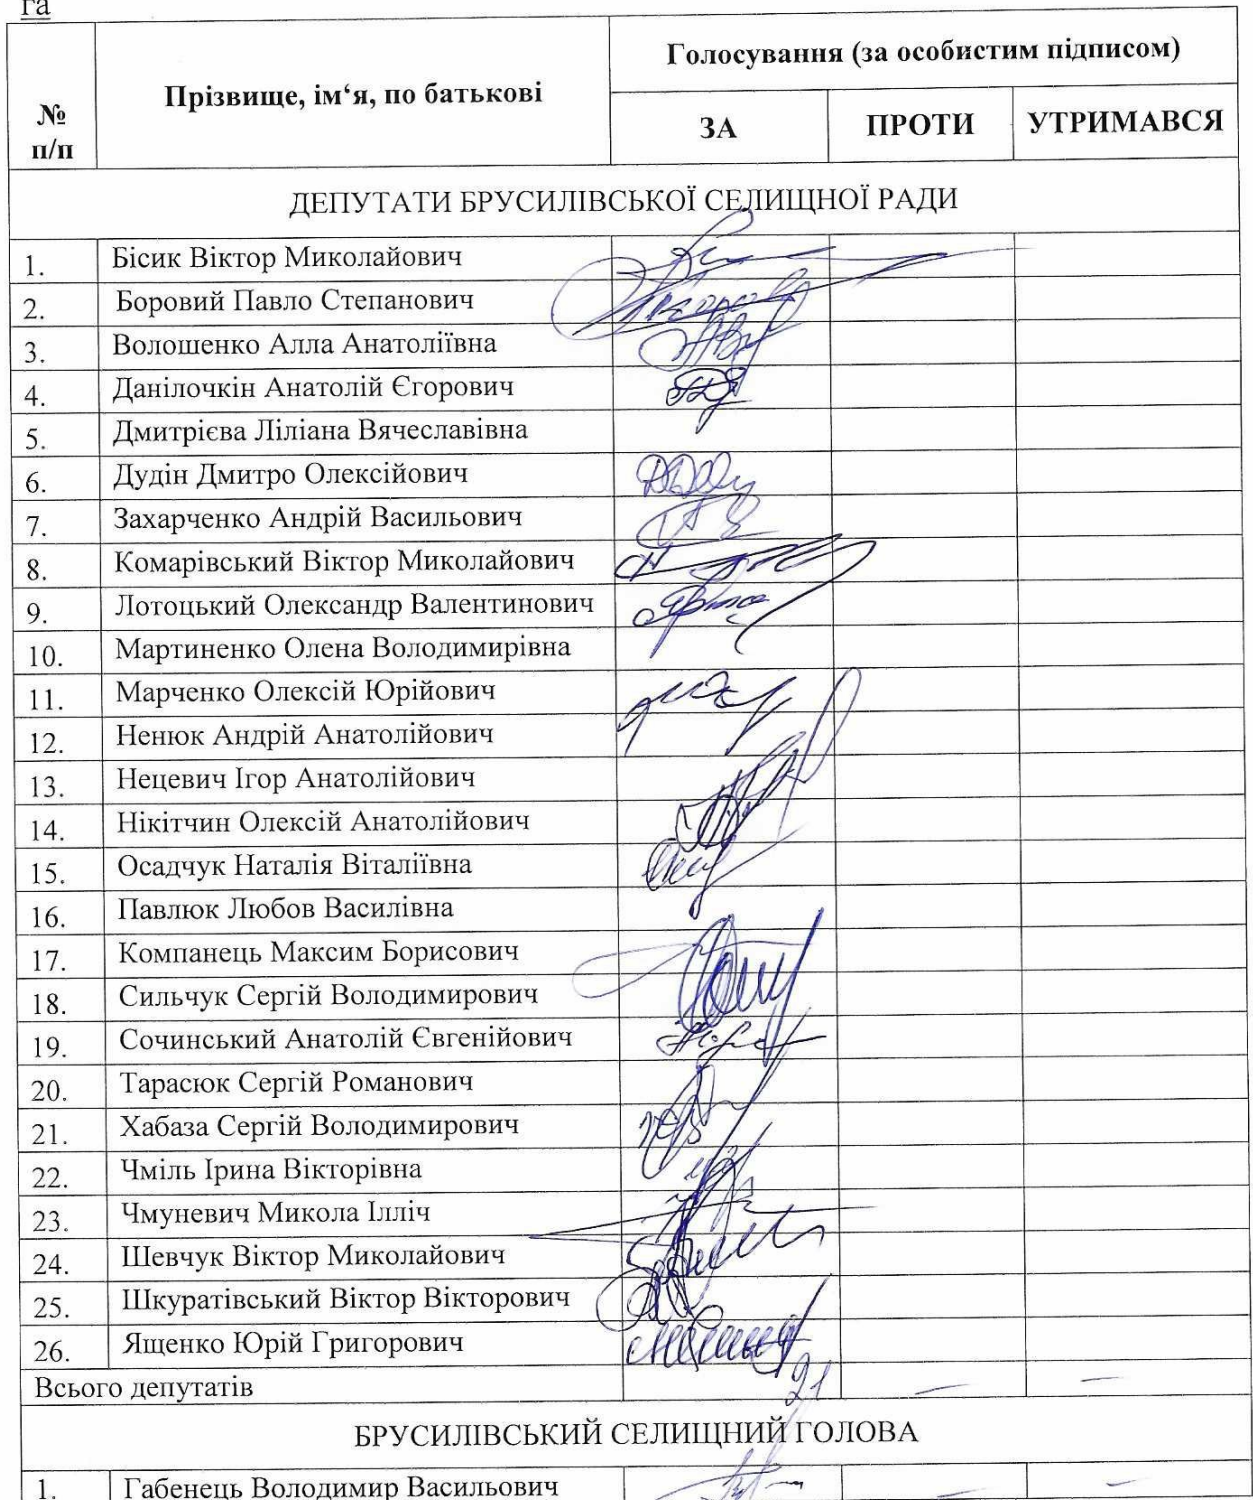 га
№ п/п
Прізвище, ім‘я, по батькові
Голосування (за особистим підписом)
ЗА
ПРОТИ
УТРИМАВСЯ
ДЕПУТАТИ БРУСИЛІВСЬКОЇ СЕЛИЩНОЇ РАДИ
1. Бісик Віктор Миколайович
2. Боровий Павло Степанович
3. Волошенко Алла Анатоліївна
4. Данілочкін Анатолій Єгорович
5. Дмитрієва Ліліана Вячеславівна
6. Дудін Дмитро Олексійович
7. Захарченко Андрій Васильович
8. Комарівський Віктор Миколайович
9. Лотоцький Олександр Валентинович
10. Мартиненко Олена Володимирівна
11. Марченко Олексій Юрійович
12. Ненюк Андрій Анатолійович
13. Нецевич Ігор Анатолійович
14. Нікітчин Олексій Анатолійович
15. Осадчук Наталія Віталіївна
16. Павлюк Любов Василівна
17. Компанець Максим Борисович
18. Сильчук Сергій Володимирович
19. Сочинський Анатолій Євгенійович
20. Тарасюк Сергій Романович
21. Хабаза Сергій Володимирович
22. Чміль Ірина Вікторівна
23. Чмуневич Микола Ілліч
24. Шевчук Віктор Миколайович
25. Шкуратівський Віктор Вікторович
26. Ященко Юрій Григорович
Всього депутатів 21 — —
БРУСИЛІВСЬКИЙ СЕЛИЩНИЙ ГОЛОВА
1. Габенець Володимир Васильович — —